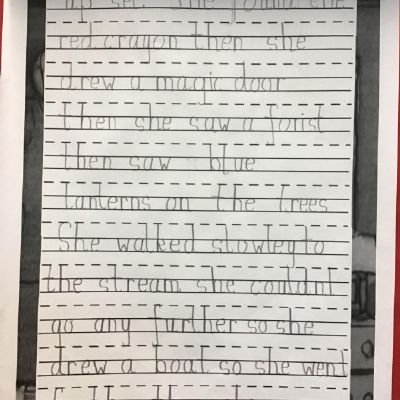 up set. She found the
red crayon then she
drew a magic door
then she saw a forist
then saw blue
lanterns on the trees
She walked slowley to
the stream she couldnt
go any further so she
drew a boat so she went